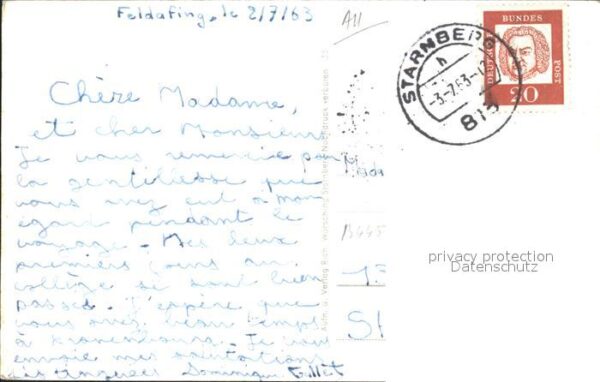 Feldafing, le 2/7/63
A11
Chère Madame,
et cher Monsieur
Je vous remercie pour
la gentillesse que
vous avez eut à mon
égard pendant le
voyage. Mes deux
premiers jours au
collège se sont bien
passés. J'espère que
vous avez beau temps
à
Je vous
envoie mes salutations
Dominique
STARNBERG
h
-3.-7.63-
813
DEUTSCHE
BUNDES
POST
20
privacy protection
Datenschutz